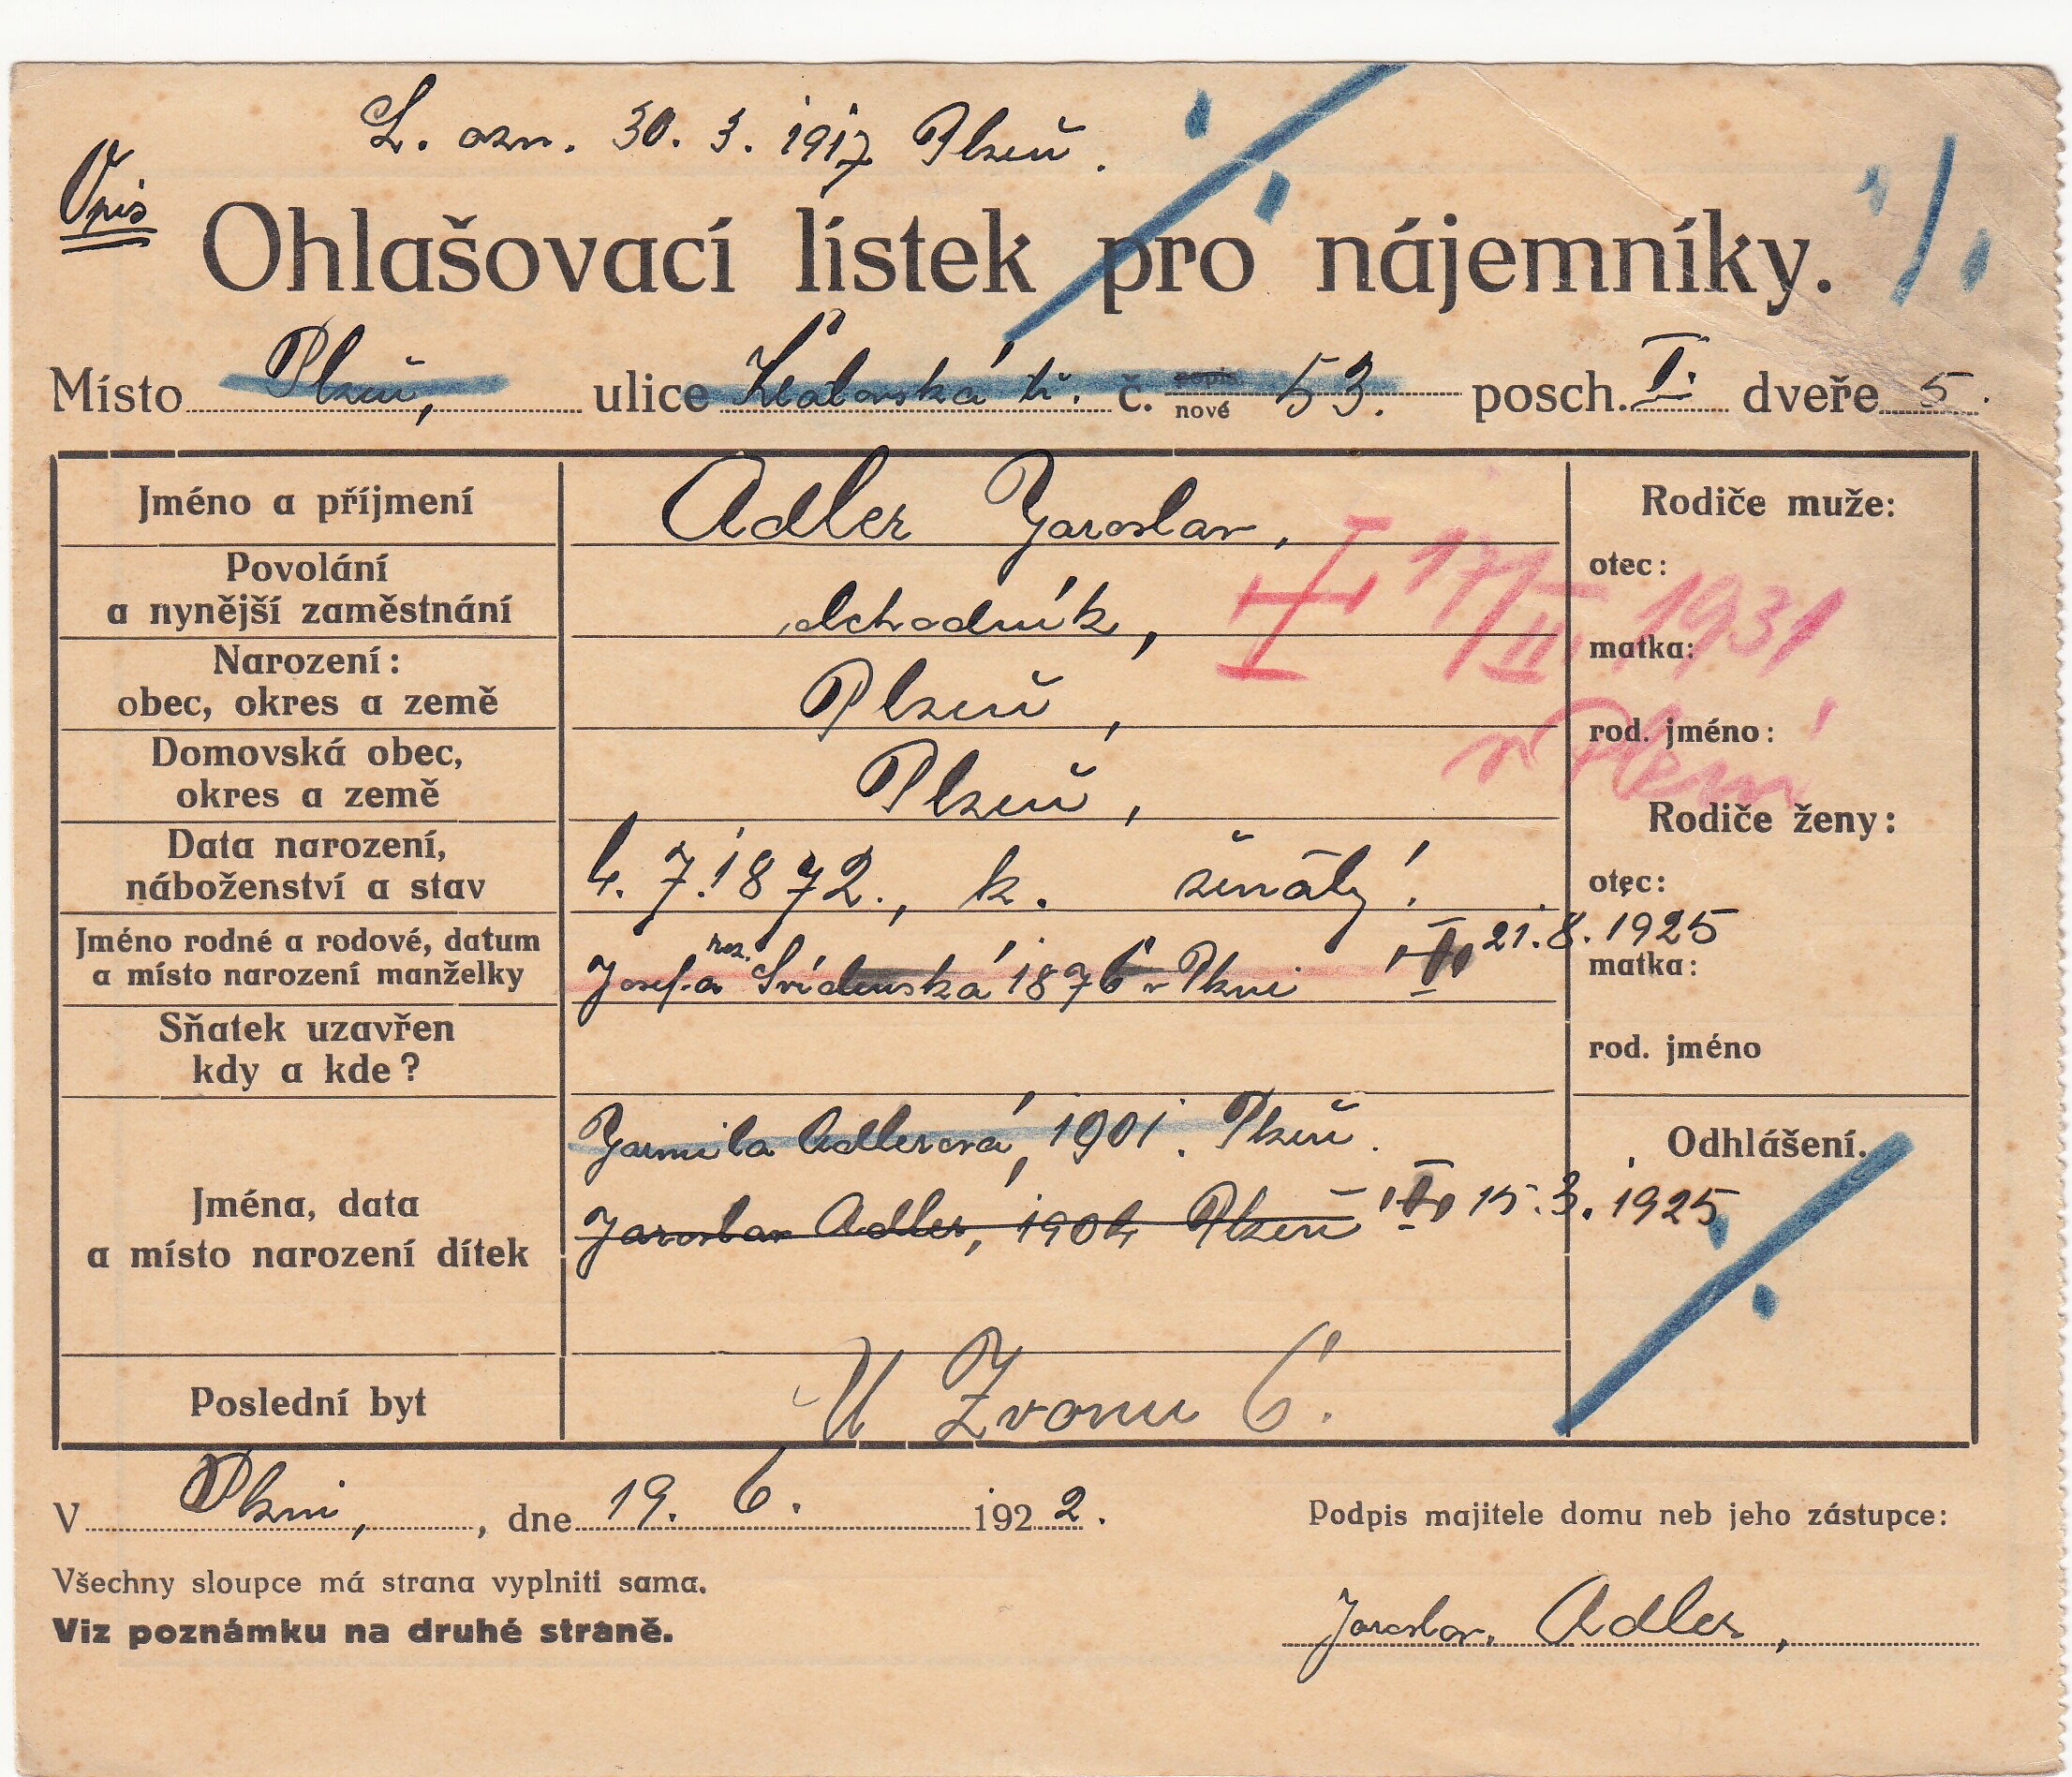 L. ozn. 30. 3. 1917 Plzeň.
Opis
Ohlašovací lístek pro nájemníky.
Místo Plzeň, ulice Klatovská tř. č. popis. nové 53. posch. I. dveře 5.
Jméno a příjmení Adler Jaroslav, Rodiče muže:
Povolání
a nynější zaměstnání obchodník, otec:
17/II 1931
Narození: matka:
obec, okres a země Plzeň,
v Plzni
rod. jméno:
Domovská obec,
okres a země Plzeň, Rodiče ženy:
Data narození,
náboženství a stav 4. 7. 1872., k. ženatý. otec:
21. 8. 1925
Jméno rodné a rodové, datum
a místo narození manželky Josefa roz. 1876 v Plzni matka:
Sňatek uzavřen
kdy a kde? rod. jméno
Jarmila Adlerová, 1901. Plzeň. Odhlášení.
Jména, data
a místo narození dítek Jaroslav Adler, 1904 Plzeň 15. 3. 1925
Poslední byt U Zvonu 6.
V Plzni, , dne 19. 6. 1922. Podpis majitele domu neb jeho zástupce:
Všechny sloupce má strana vyplniti sama.
Viz poznámku na druhé straně. Jaroslav Adler,